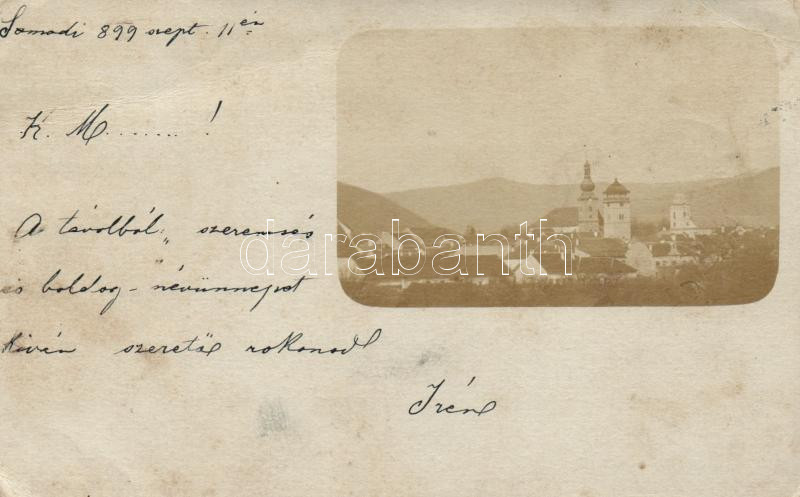 Somodi 899 szept. 11én
K. M........!
A távolból „ szerencsés
és boldog - névünnepet
kiván szerető rokonod
Irén
darabanth